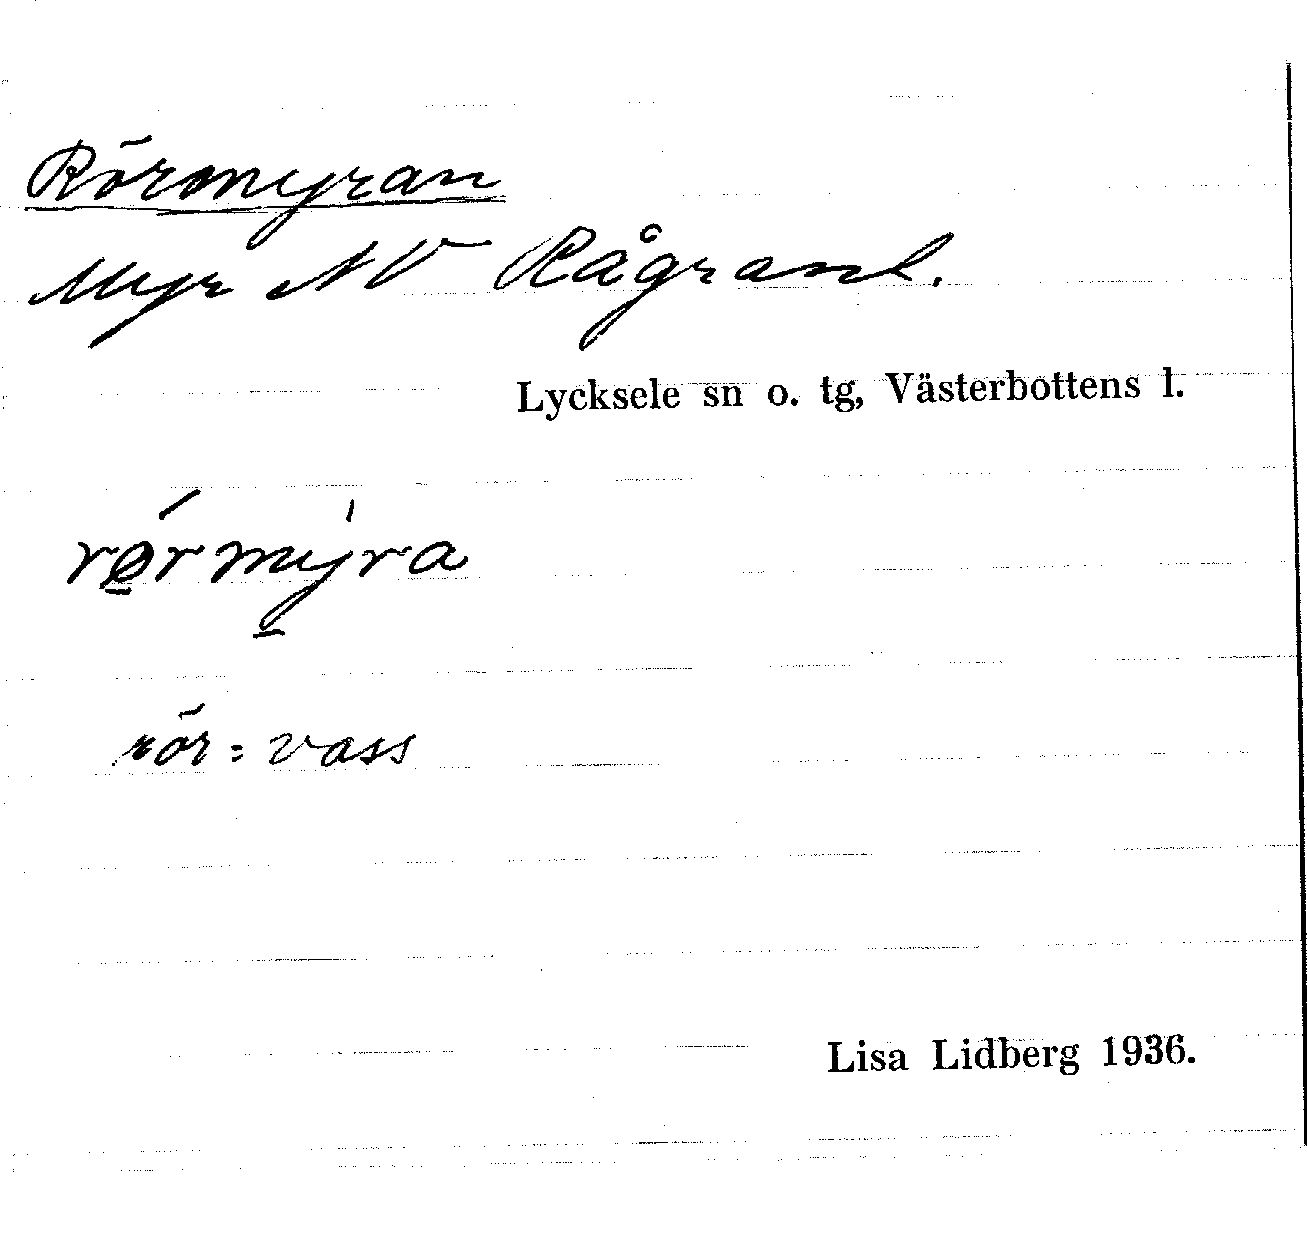 Rörmyran
Myr NV Rågransl.
Lycksele sn o. tg, Västerbottens l.
rǿ̱rmy̱̍ra
rör = vass
Lisa Lidberg 1936.